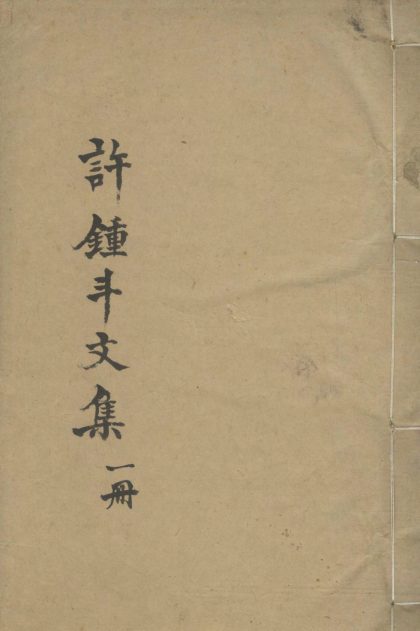 許鍾斗文集 一冊